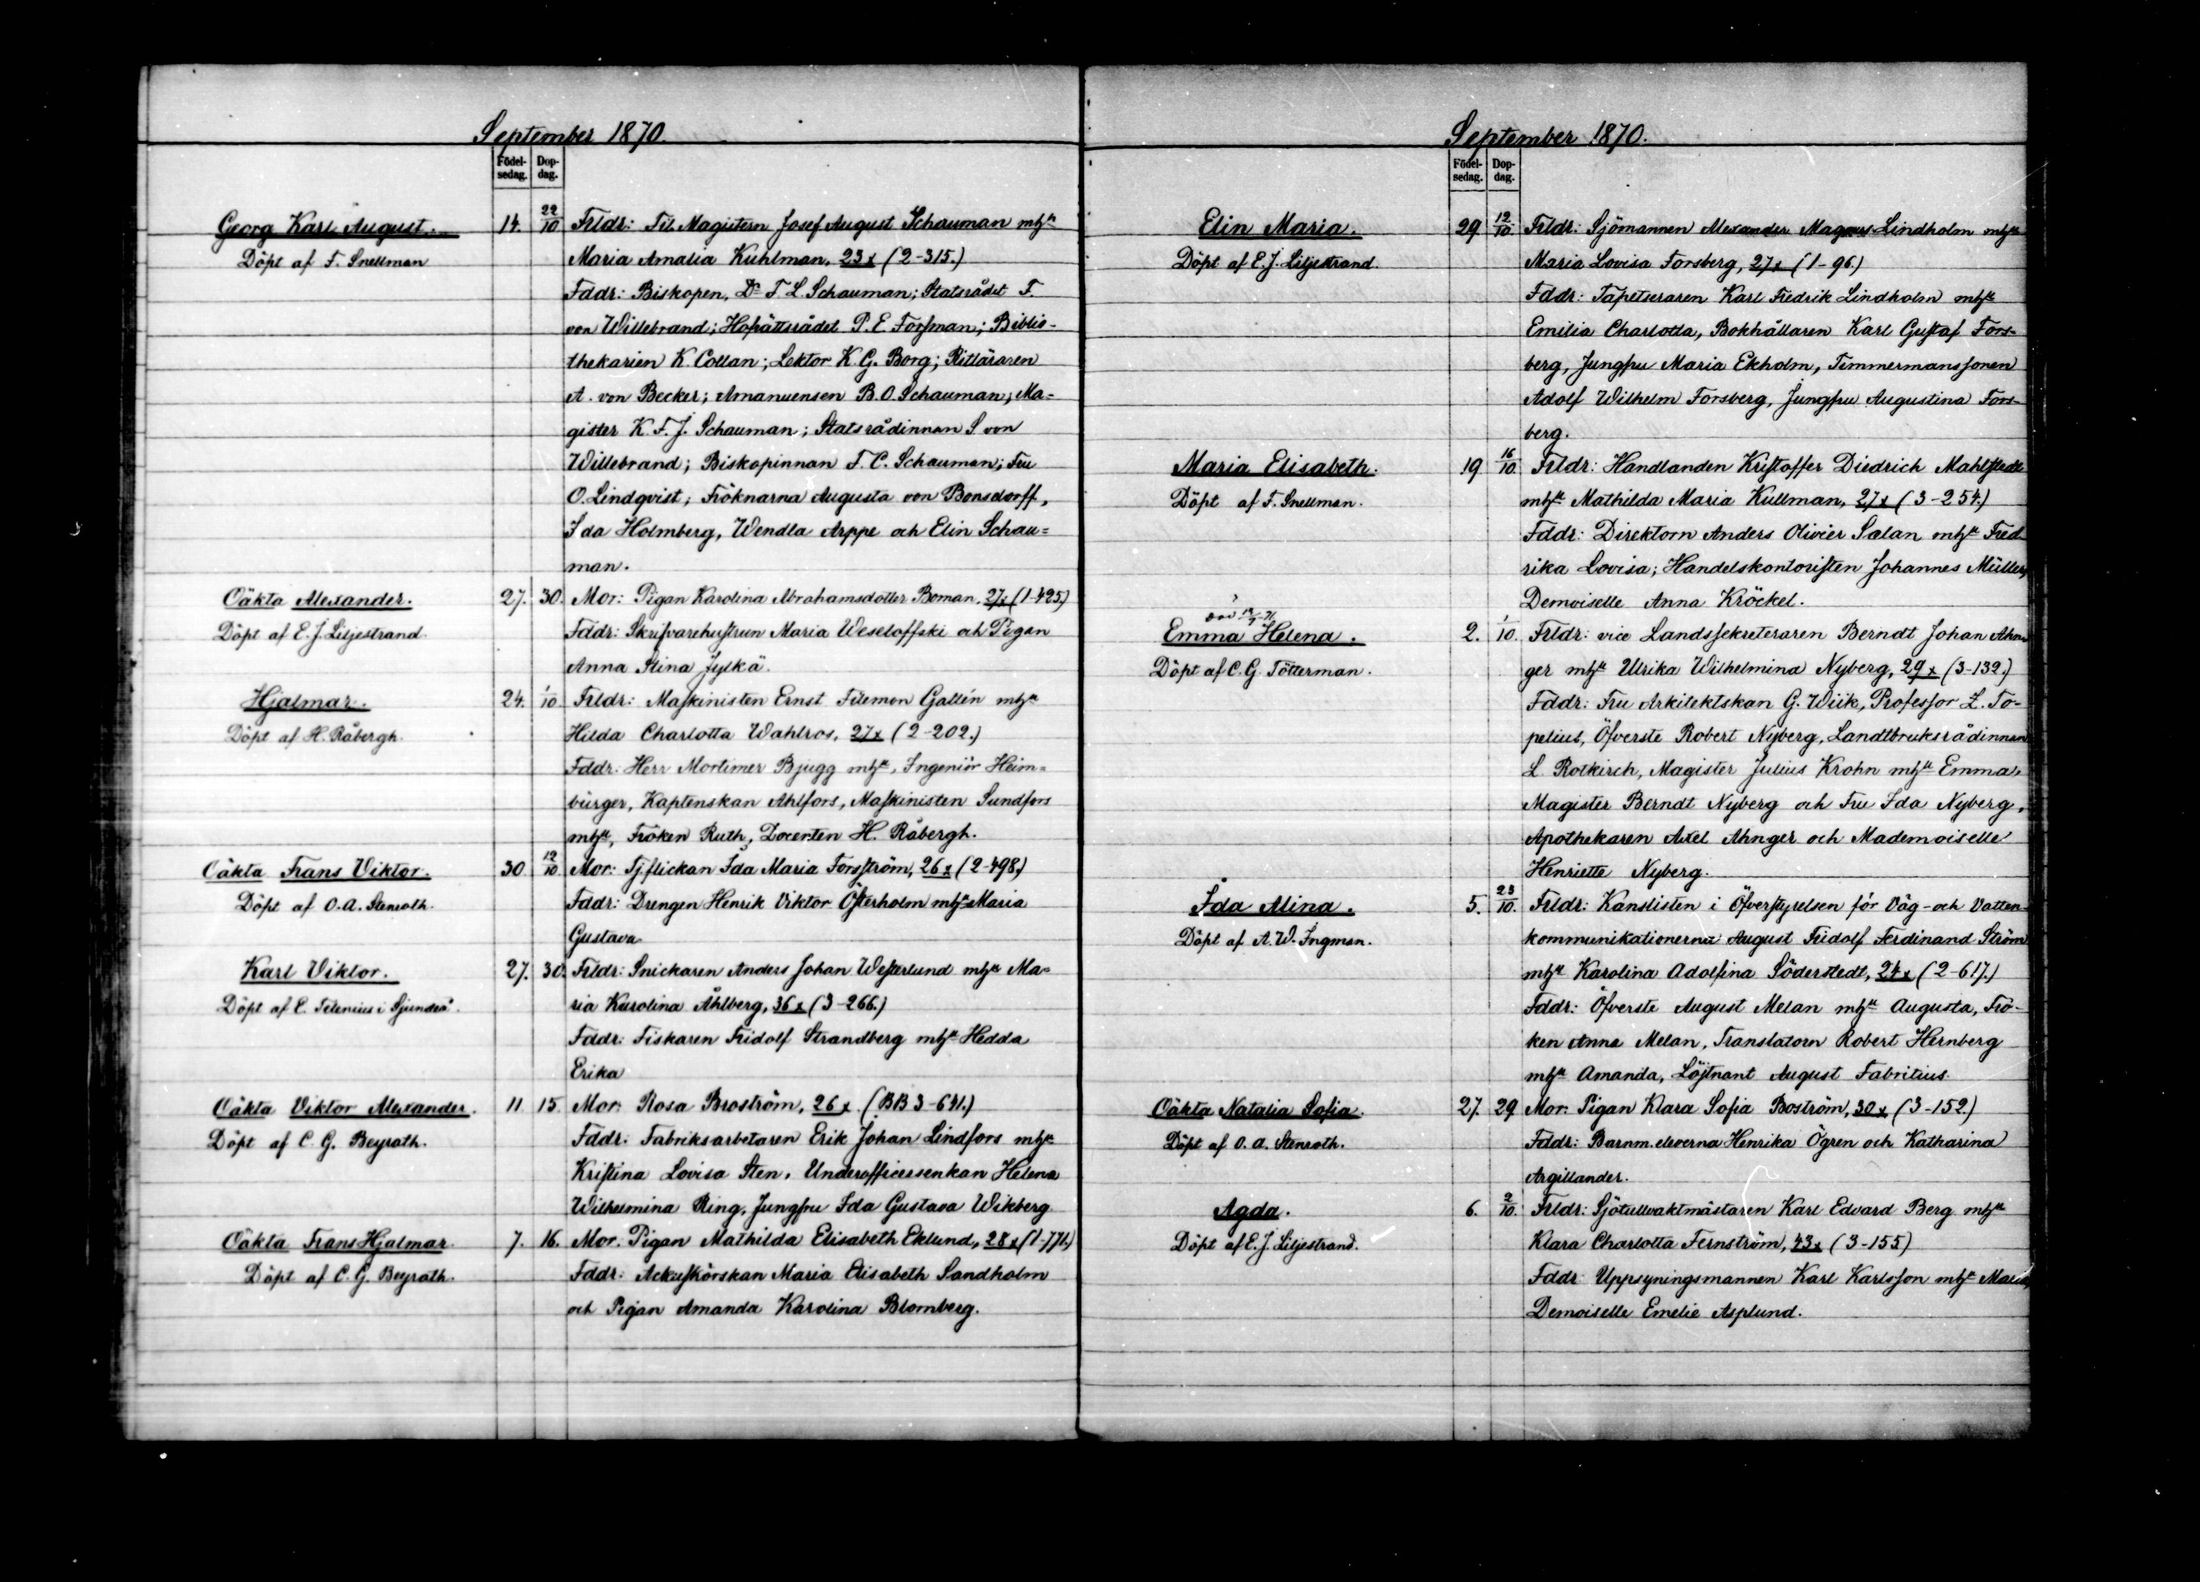 September 1870.
Födel-
sedag.
Dop-
dag.
Georg Karl August. 14. 22/10 Frldr: Fil. Magistern Josef August Schauman mhu
Döpt af F. Snellman Maria Amalia Kuhlman, 23 x (2-315.)
Fddr: Biskopen, Dr F. L. Schauman; Statsrådet F.
von Willebrand; Hofrättsrådet P. E. Forsman; Biblio-
thekarien K. Collan; Lektor K. G. Borg; Ritläraren
A. von Becker; Amanuensen B. O. Schauman; Ma-
gister K. F. J. Schauman; Statsrådinnan S. von
Willebrand; Biskopinnan F. C. Schauman; Fru
O. Lindqvist; Fröknarna Augusta von Bonsdorff,
Ida Holmberg, Wendla Arppe och Elin Schau-
man.
Oäkta Alexander. 27. 30. Mor: Pigan Karolina Abrahamsdotter Boman, 27 x (1-425.)
Döpt af E. J. Liljestrand. Fddr: Skrifvarehustrun Maria Weseloffski och Pigan
Anna Stina Jylkä.
Hjalmar. 24. 1/10 Frldr: Maskinisten Ernst Filemon Gallén mhu
Döpt af H. Råbergh. Hilda Charlotta Wahlros, 27 x (2-202.)
Fddr: Herr Mortimer Bjugg mhu, Ingeniör Heim-
bürger, Kaptenskan Ahlfors, Maskinisten Sundfors
mhu, Fröken Ruth, Docenten H. Råbergh.
Oäkta Frans Viktor. 30 12/10 Mor: Tj.flickan Ida Maria Forsström, 26 x (2-498.)
Döpt af O. A. Stenroth. Fddr: Drengen Henrik Viktor Österholm mhu Maria
Gustava
Karl Viktor. 27. 30. Frldr: Snickaren Anders Johan Westerlund mhu Ma-
Döpt af E. Telenius i Sjundeå. ria Karolina Åhlberg, 36 x (3-266.)
Fddr: Fiskaren Fridolf Strandberg mhu Hedda
Erika
Oäkta Viktor Alexander. 11 15. Mor: Rosa Broström, 26 x. (BB 3-641.)
Döpt af C. G. Beyrath. Fddr: Fabriksarbetaren Erik Johan Lindfors mhu
Kristina Lovisa Sten, Underofficersenkan Helena
Wilhelmina Ring, Jungfru Ida Gustava Wikberg
Oäkta Frans Hjalmar 7. 16. Mor: Pigan Mathilda Elisabeth Eklund, 28 x (1-771.)
Döpt af C. G. Beyrath. Fddr: Maria Elisabeth Sandholm
och Pigan Amanda Karolina Blomberg.
September 1870.
Födel-
sedag.
Dop-
dag.
Elin Maria. 29 12/10. Frldr: Sjömannen Alexander Magnus Lindholm mhu
Döpt af E. J. Liljestrand. Maria Lovisa Forsberg, 27 x (1-96.)
Fddr: Tapetseraren Karl Fredrik Lindholm mhu
Emilia Charlotta, Bokhållaren Karl Gustaf Fors-
berg, Jungfru Maria Ekholm, Timmermanssonen
Adolf Wilhelm Forsberg, Jungfru Augustina Fors-
berg.
Maria Elisabeth. 19. 16/10. Frldr: Handlanden Kristoffer Diedrich Mahlstedt
Döpt af F. Snellman. mhu Mathilda Maria Kullman, 27 x (3-254.)
Fddr: Direktorn Anders Olivier Sælan mhu Fred-
rika Lovisa; Handelskontoristen Johannes Müller,
Demoiselle Anna Kröckel.
Emma Helena. 2. 1/10. Frldr: vice Landssekreteraren Berndt Johan Ahn-
Döpt af C. G. Tötterman. ger mhu Ulrika Wilhelmina Nyberg, 29 x (3-132.)
Fddr: Fru Arkitektskan G. Wiik, Professor L. To-
pelius, Öfverste Robert Nyberg, Landtbruksrådinnan
L. Rotkirch, Magister Julius Krohn mhu Emma,
Magister Berndt Nyberg och Fru Ida Nyberg,
Apothekaren Axel Ahnger och Mademoiselle
Henriette Nyberg.
Ida Alina. 5. 23/10. Frldr: Kanslisten i Öfverstyrelsen för Väg- och Vatten-
Döpt af A. W. Ingman. kommunikationerna August Fridolf Ferdinand Ström
mhu Karolina Adolfina Söderstedt, 24 x (2-617.)
Fddr: Öfverste August Melan mhu Augusta, Frö-
ken Anna Melan, Translatorn Robert Hernberg
mhu Amanda, Löjtnant August Fabritius.
Oäkta Natalia Sofia. 27. 29 Mor: Pigan Klara Sofia Boström, 30 x (3-152.)
Döpt af O. A. Stenroth. Fddr: Barnm.eleverna Henrika Ögren och Katharina
Argillander.
Agda. 6. 2/10. Frldr: Sjötullvaktmästaren Karl Edvard Berg mhu
Döpt af E. J. Liljestrand. Klara Charlotta Fernström, 43 x (3-155)
Fddr: Uppsyningsmannen Karl Karlsson mhu Maria,
Demoiselle Emelie Asplund.